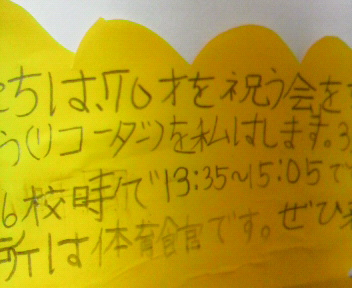 ちは、70才を祝う会を
う(リコーダー)を私はします。3
6校時で13:35~15:05で
所は体育館です。ぜひ